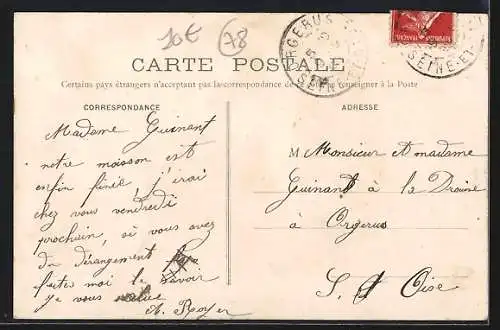 30E
78
ORGERUS
SEINE-ET-
CARTE POSTALE
Certains pays étrangers n'acceptant pas la correspondance de se renseigner à la Poste
CORRESPONDANCE
Madame Guinant
notre moisson est
enfin finie, j'irai
chez vous vendredi
prochain, si vous avez
du dérangement
faites moi le savoir
je vous salue
A. Royer
ADRESSE
M Monsieur et madame
Guinant à la
à
Orgerus
S. et Oise